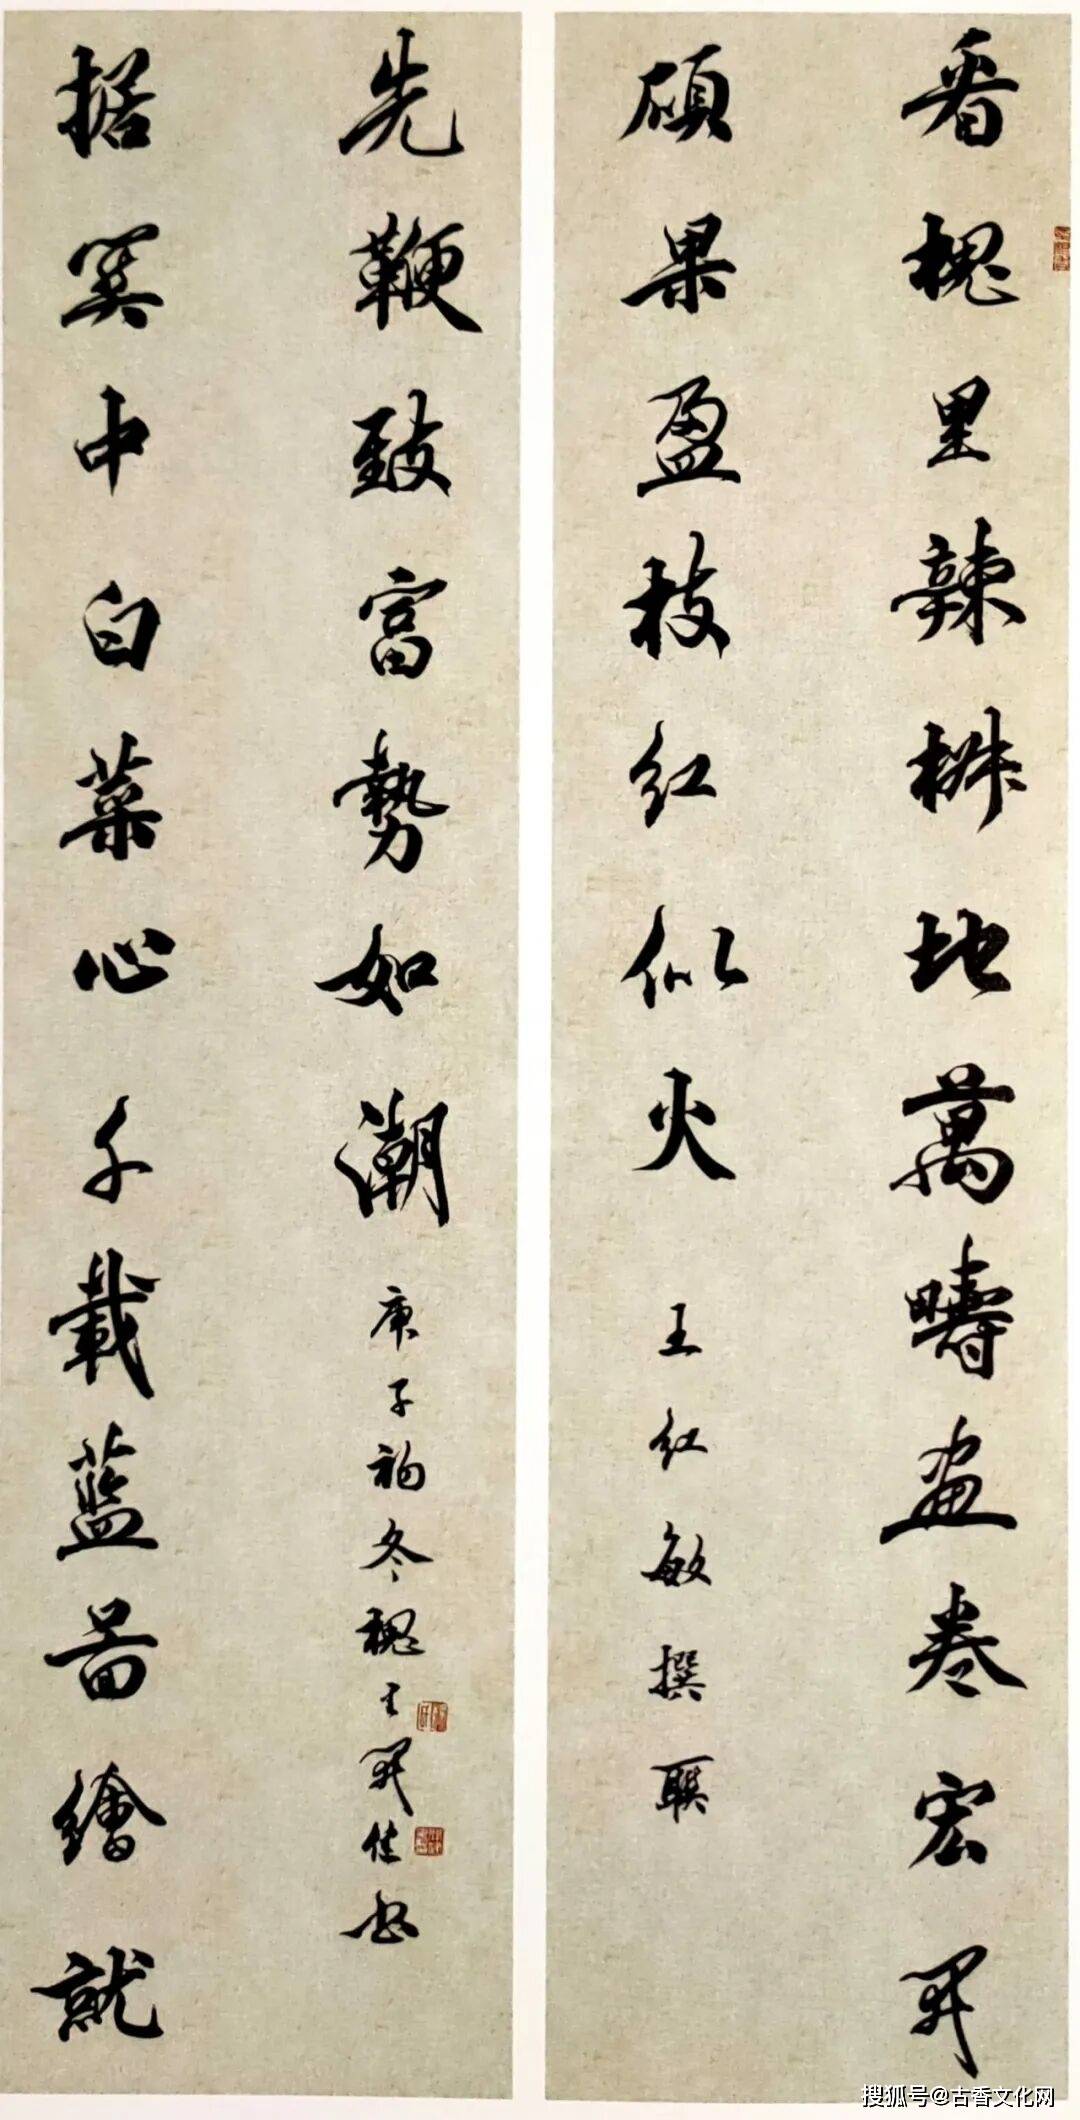 看槐里辣椒地萬疇畫卷宏開
碩果盈枝紅似火 王紅敏撰聯
据冀中白菜心千載藍圖繪就
先鞭致富勢如潮 庚子初冬槐 開佳書
搜狐号@古香文化网